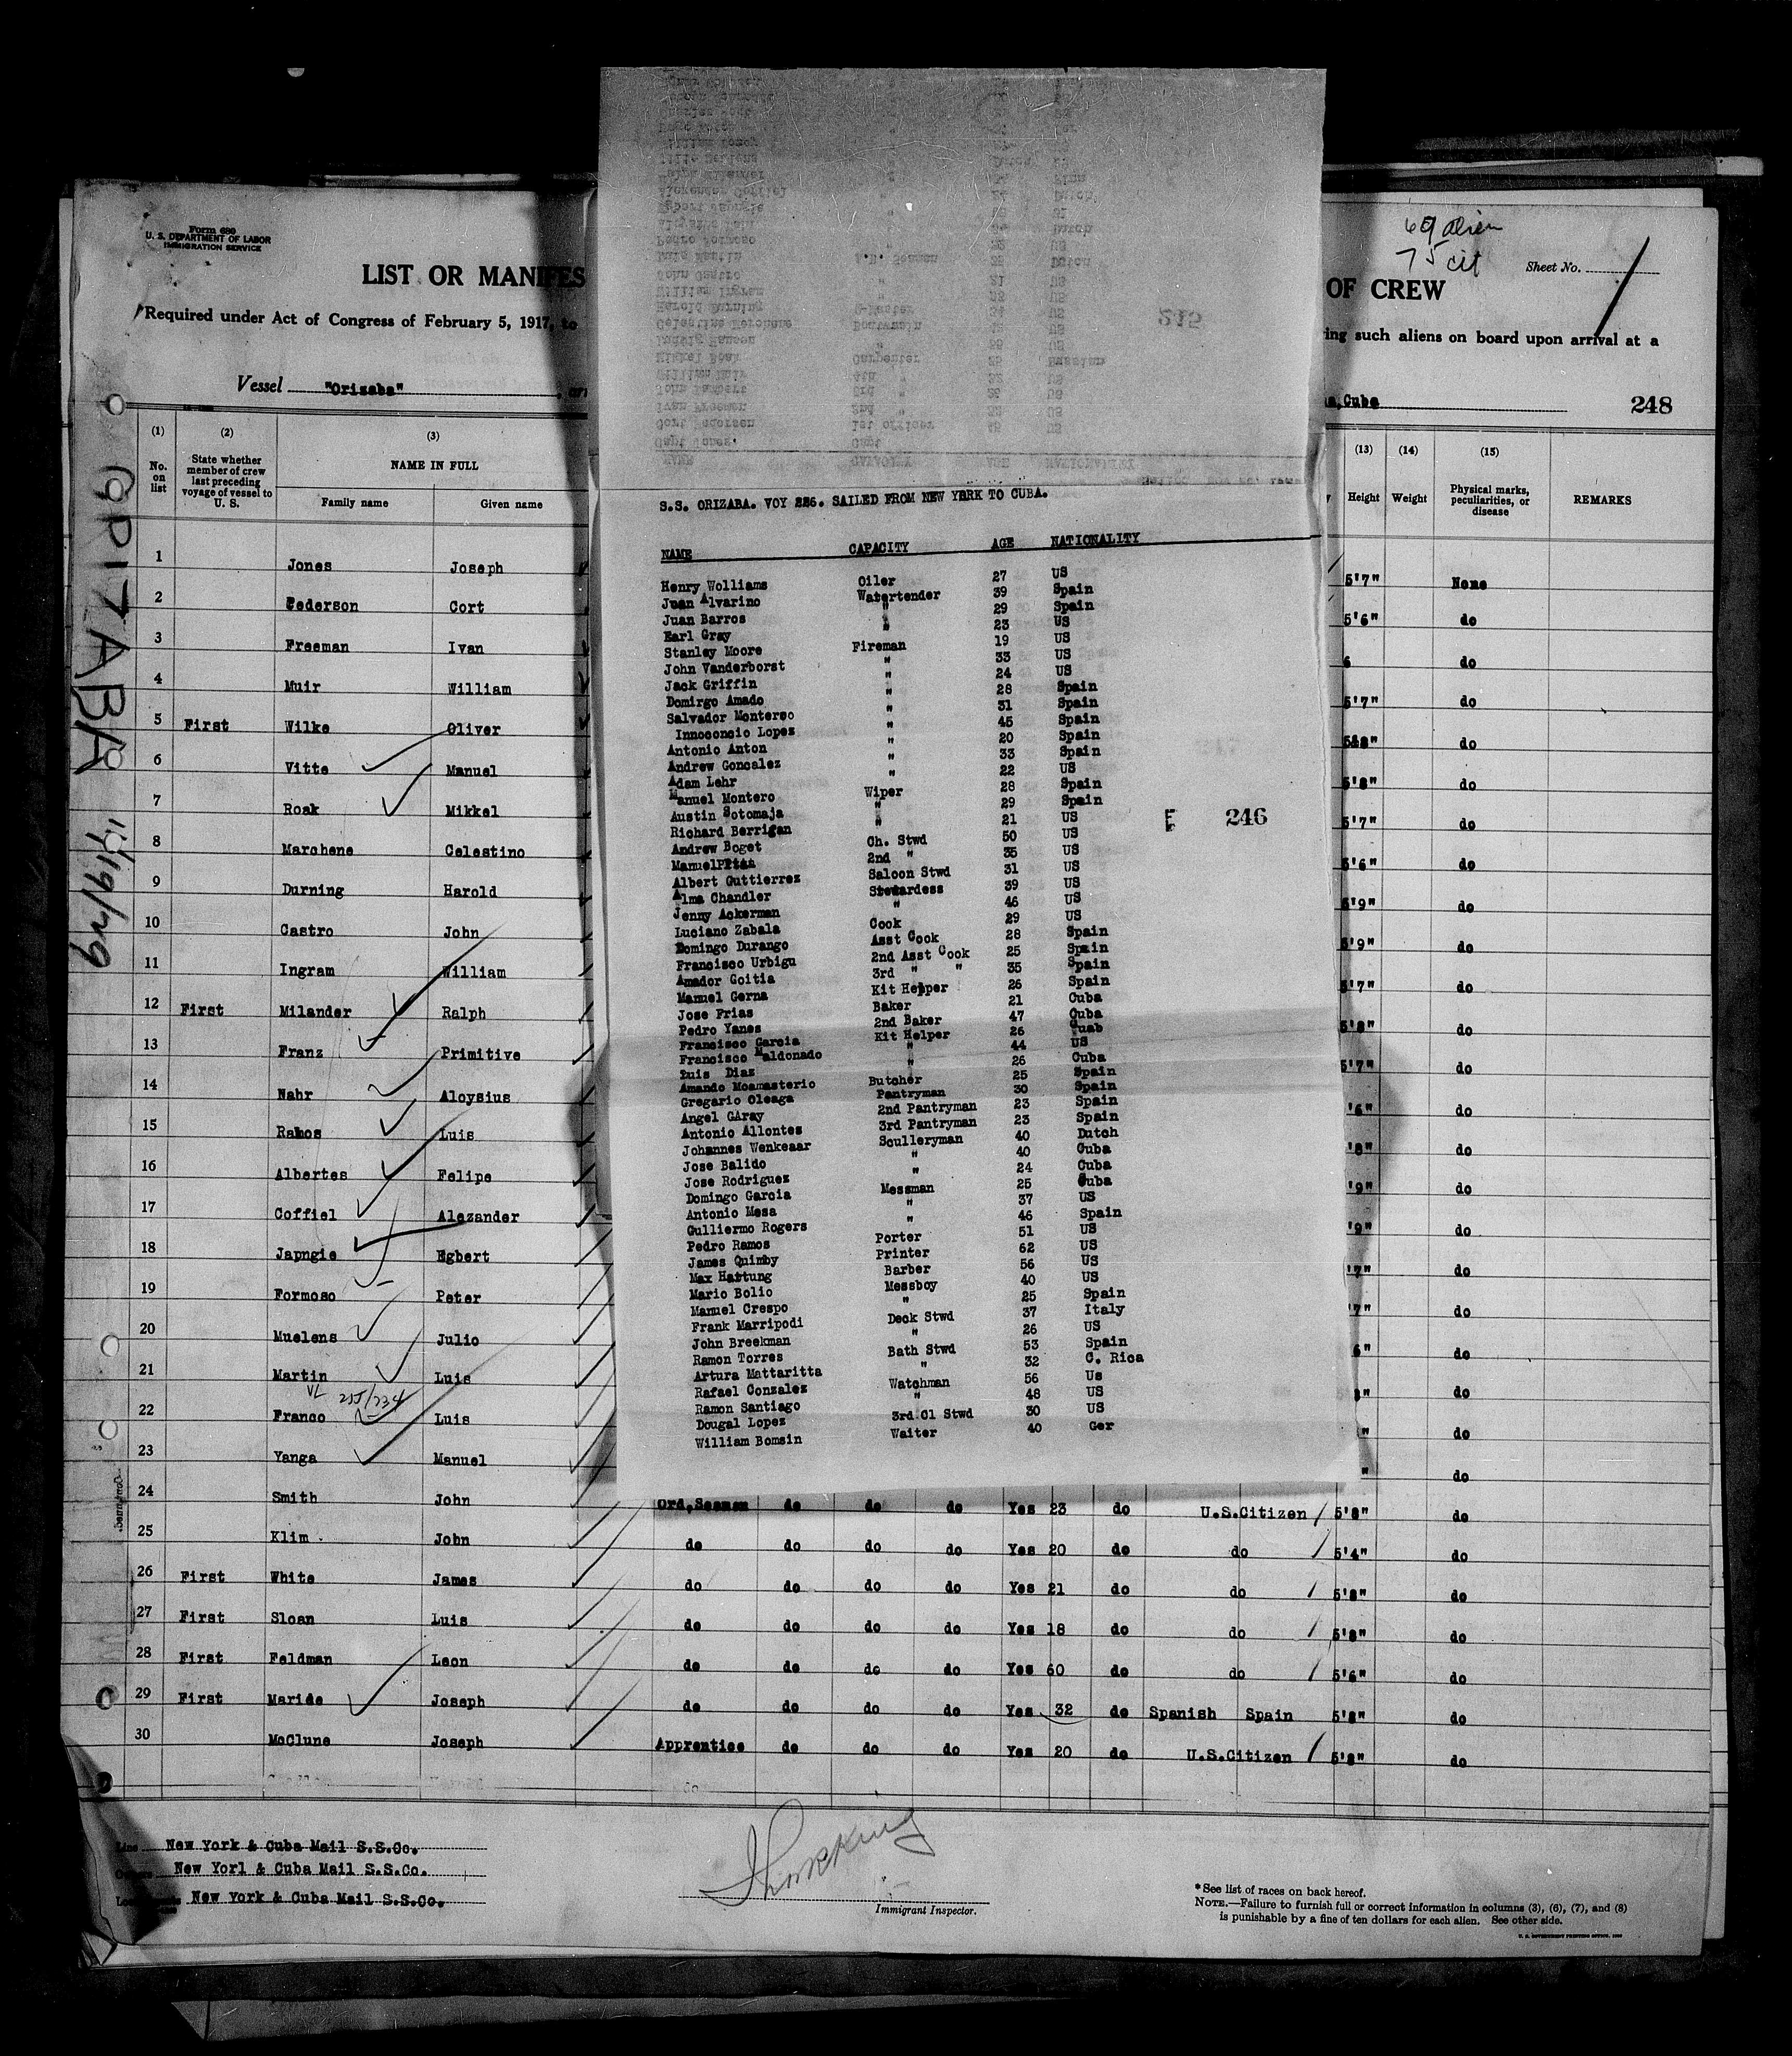 Form 680
U. S. DEPARTMENT OF LABOR
IMMIGRATION SERVICE
69 alien
75 cit
Sheet No.
LIST OR MANIFES
OF CREW
Required under Act of Congress of February 5, 1917, to
ing such aliens on board upon arrival at a
Vessel "Orizaba"
a, Cuba
248
ORIZABA
(1) (2) (3)
No. on list
State whether member of crew last preceding voyage of vessel to U. S.
NAME IN FULL
Family name Given name
(13) (14) (15)
Height Weight Physical marks, peculiarities, or disease REMARKS
1 Jones Joseph 5'7" None
2 Pederson Cort 5'6" do
3 Freeman Ivan 6 do
4 Muir William 5'7" do
5 First Wilke Oliver 5'8" do
6 Vitte Manuel 5'8" do
7 Roak Mikkel 5'7" do
8 Marchene Celestino 5'6" do
9 Durning Harold 5'9" do
10 Castro John 5'9" do
11 Ingram William 5'7" do
12 First Milander Ralph 5'8" do
13 Franz Primitive 5'7" do
14 Nahr Aloysius '6" do
15 Ramos Luis '8" do
16 Albertes Felipe '9" do
17 Coffiel Alezander '9" do
18 Japngie Egbert '7" do
19 Formoso Peter '7" do
20 Muelens Julio 6" do
21 Martin Luis " do
22 Franco Luis " do
23 Yanga Manuel " do
24 Smith John Ord.Seaman do do do Yes 23 do U.S.Citizen 5'8" do
25 Klim John do do do do Yes 20 do do 5'4" do
26 First White James do do do do Yes 21 do do 5'8" do
27 First Sloan Luis do do do do Yes 18 do do 5'8" do
28 First Feldman Leon do do do do Yes 60 do do 5'6" do
29 First Maride Joseph do do do do Yes 32 do Spanish Spain 5'8" do
30 McClune Joseph Apprentice do do do Yes 20 do U.S.Citizen 5'8" do
245
S.S. ORIZABA. VOY 226. SAILED FROM NEW YORK TO CUBA.
NAME CAPACITY AGE NATIONALITY
Henry Wolliams Oiler 27 US
Juan Alvarino Watertender 39 Spain
Juan Barros " 29 Spain
Earl Gray " 23 US
Stanley Moore Fireman 19 US
John Vanderborst " 33 US
Jack Griffin " 24 US
Domirgo Amado " 28 Spain
Salvador Monterso " 31 Spain
Innoconcio Lopez " 45 Spain
Antonio Anton " 20 Spain
Andrew Goncalez " 33 Spain
Adam Lehr " 22 US
Manuel Montero Wiper 28 Spain
Austin Sotomaja " 29 Spain
Richard Berrigan " 21 US
Andrew Boget Ch. Stwd 50 US
Manuel 2nd " 35 US
Albert Guttierrez Saloon Stwd 31 US
Alma Chandler Stewardess 39 US
Jenny Ackerman " 46 US
Luciano Zabala Cook 29 US
Domingo Durango Asst Cook 28 Spain
Francisco Urbigu 2nd Asst Cook 25 Spain
Amador Goitia 3rd " " 35 Spain
Manuel Gerna Kit Helper 26 Spain
Jose Frias Baker 21 Cuba
Pedro Yanes 2nd Baker 47 Cuba
Francisco Garcia Kit Helper 26 Cuab
Francisco Maldonado " 44 US
Luis Diaz " 26 Cuba
Amando Moamasterio Butcher 25 Spain
Gregario Oleaga Pantryman 30 Spain
Angel GAray 2nd Pantryman 23 Spain
Antonio Allontes 3rd Pantryman 23 Spain
Johannes Wenkeaar Sculleryman 40 Dutch
Jose Balido " 40 Cuba
Jose Rodriguez " 24 Cuba
Domingo Garcia Messman 25 Cuba
Antonio Mesa " 37 US
Gulliermo Rogers " 46 Spain
Pedro Ramos Porter 51 US
James Quimby Printer 62 US
Max Hartung Barber 56 US
Mario Bolio Messboy 40 US
Manuel Crespo " 25 Spain
Frank Marripodi Deck Stwd 37 Italy
John Breekman " 26 US
Ramon Torres Bath Stwd 53 Spain
Artura Mattaritta " 32 C. Rica
Rafael Conzalez Watchman 56 Us
Ramon Santiago " 48 US
Dougal Lopez 3rd Cl Stwd 30 US
William Bomsin Waiter 40 Ger
E 246
Line New York & Cuba Mail S.S.Co.
Owners New Yorl & Cuba Mail S.S.Co.
New York & Cuba Mail S.S.Co.
Immigrant Inspector.
* See list of races on back hereof.
NOTE.—Failure to furnish full or correct information in columns (3), (6), (7), and (8)
is punishable by a fine of ten dollars for each alien. See other side.
U. S. GOVERNMENT PRINTING OFFICE